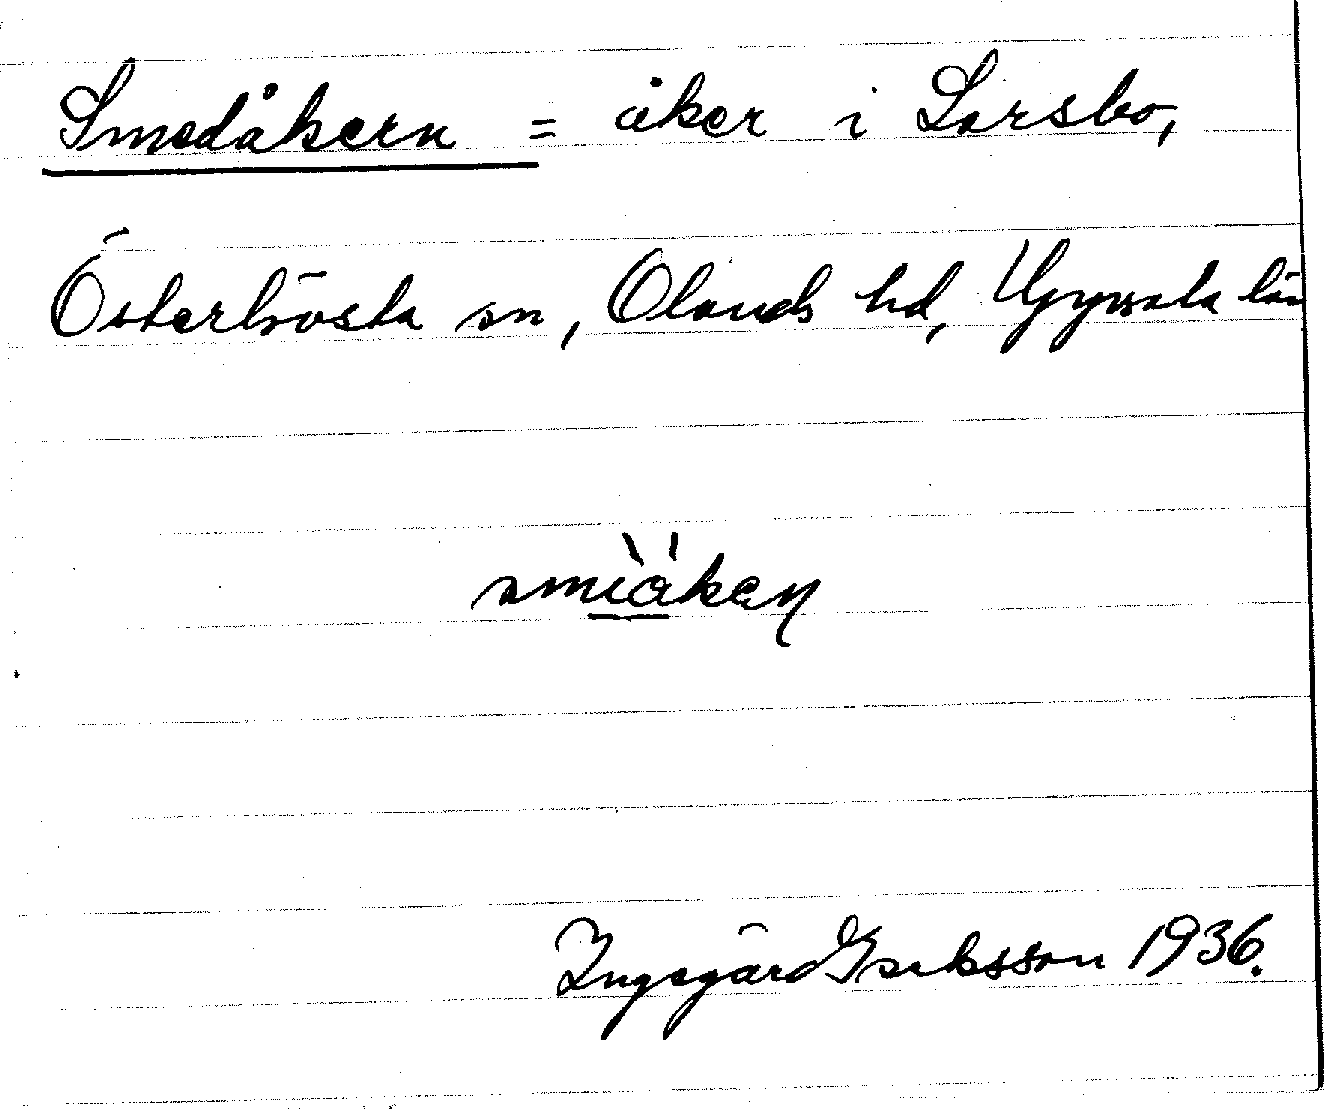 Smedåkern = åker i Larsbo,
Österlövsta sn, Olands hd, Uppsala län
Ingegärd Eriksson 1936.